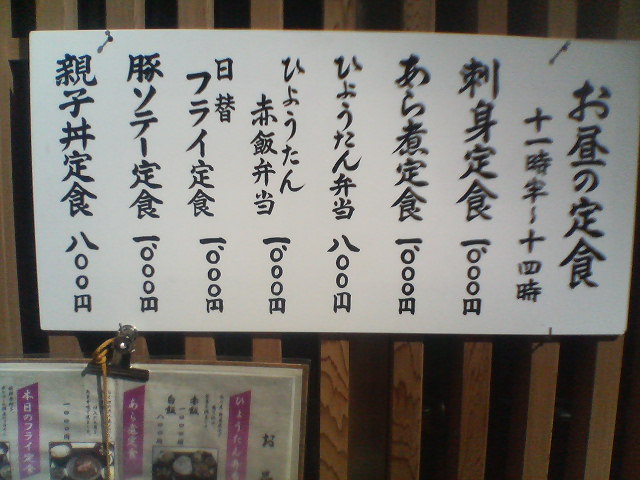 お昼の定食
十一時半〜十四時
刺身定食 一、〇〇〇円
あら煮定食 一、〇〇〇円
ひょうたん弁当 八〇〇円
ひょうたん
赤飯弁当 一、〇〇〇円
日替
フライ定食 一、〇〇〇円
豚ソテー定食 一、〇〇〇円
親子丼定食 八〇〇円
ひょうたん弁
赤飯
白飯
あら煮定食
本日のフライ定食